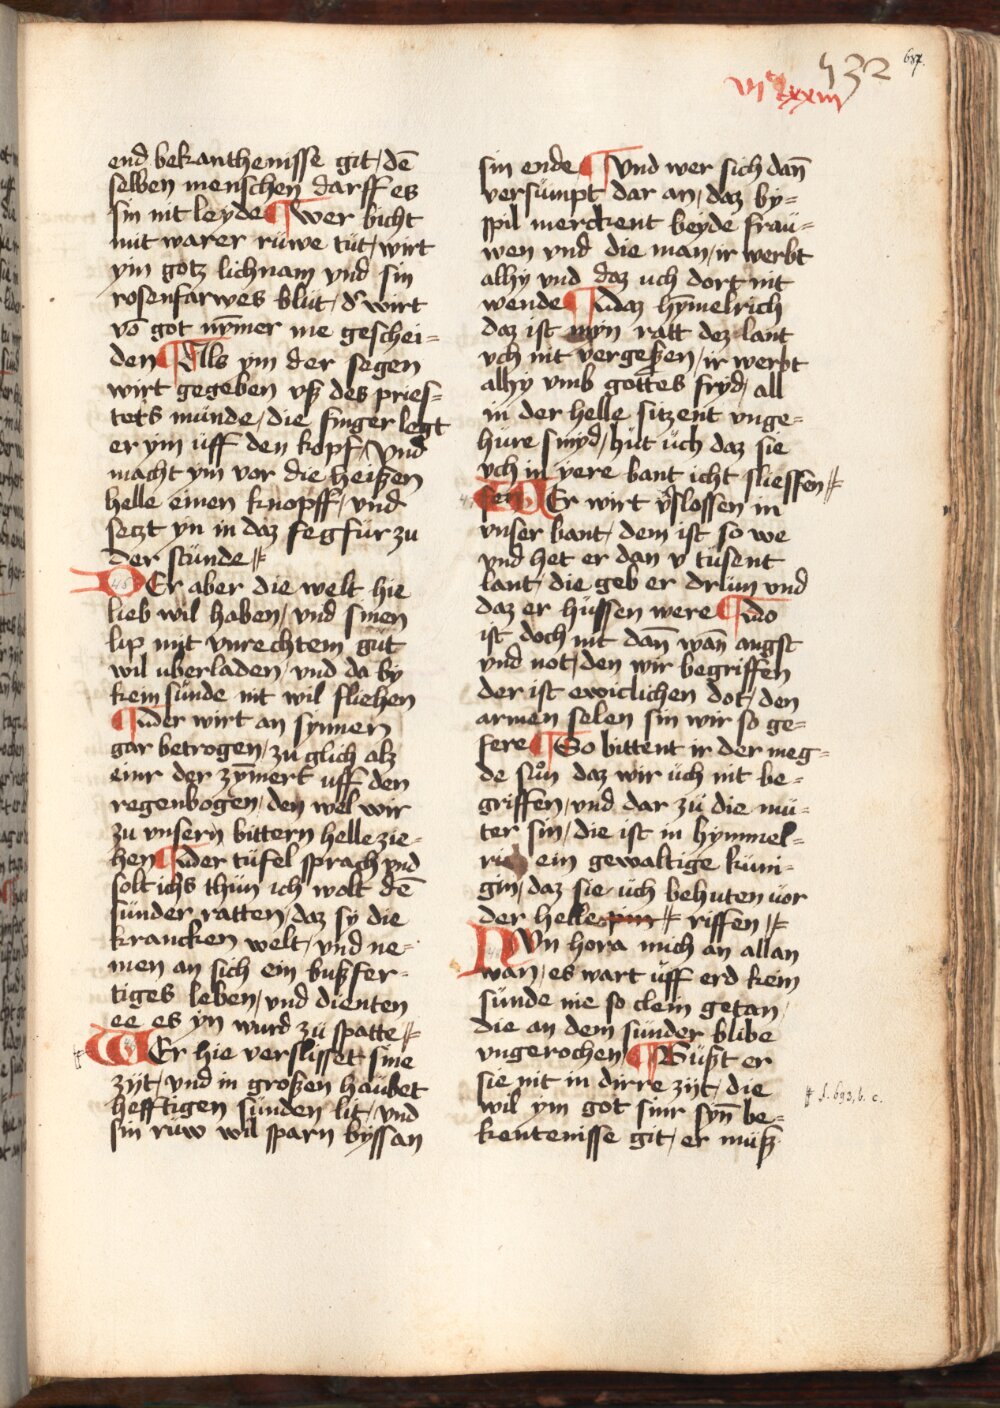 vjᶜlxxiij
432
687.
end bekanthenisse git / dē
selben menschen darff es
sin nit leyde ¶ wer bicht
mit warer rüwe tüt / wirt
ym gotz lichnam vnd sin
rosenfarwes blüt / d' wirt
vō got nÿmer me geschei=
den ¶ Als ym der segen
wirt gegeben vß des pries=
ters munde / die finger legt
er ym uff den kopf / Vnd
macht ym vor die heißen
helle einen knopff / vnd
setzt yn in daz fegfür zu
der stünde
DEr aber die welt hie
lieb wil haben / vnd sinen
lip mit vnrechtem güt
wil uberladen / vnd da by
kein sünde nit wil fliehen
¶ der wirt an synnen
gar betrogen / zu glich alz
einr der zÿmert uff den
regenbogen / den wel wir
zu vnsern bittern helle zie=
hen ¶ der tüfel sprach vnd
solt ichs thün ich wolt dē
sünder ratten / daz sy die
krancken welt / vnd ne=
men an sich ein bußfer=
tiges leben / vnd dienten
ee es yn wurd zü spatte
WEr hie verslisset sine
zijt / vnd in großen haübet
hefftigen sünden lit / vnd
sin rüw wil sparn byssan
sin ende ¶ Vnd wer sich dañ
versümpt dar an / daz by=
spil merckent beyde frau=
wen vnd die man / ir werbt
alhy vnd daz uch dort nit
wende ¶ daz hymelrich
daz ist myn ratt dez lant
vch nit vergeßen / ir werbt
alhy vmb gottes fryd / all
in der helle sitzent vnge=
hüre smyd / hüt üch daz sie
vch in yere bant icht sliessen
sen WEr wirt v̈slossen in
vnser bant / dem ist so we
vnd het er dan v tusent
lant / die geb er drüm vnd
daz er hussen were ¶ do
ist doch nit dañ wañ angst
vnd not / den wir begriffen
der ist ewiclichen dot / den
armen selen sin wir so ge=
fere ¶ So bittent ir der meg=
de sůn daz wir üch nit be=
griffen / vnd dar zü die mü=
ter sin / die ist in hymmel=
rich ein gewaltige küni=
gin / daz sie üch behuten vor
der helle pin riffen
NVn hora mich an allan
wan / es wart uff erd kein
sünde nie so clein getan /
die an dem sünder blibe
vngerochen ¶ Büßt er
sie nit in dirre zijt / die
wil ym got sinr syn̄ be=
kentenisse git / er müß
f. 693, b. c.